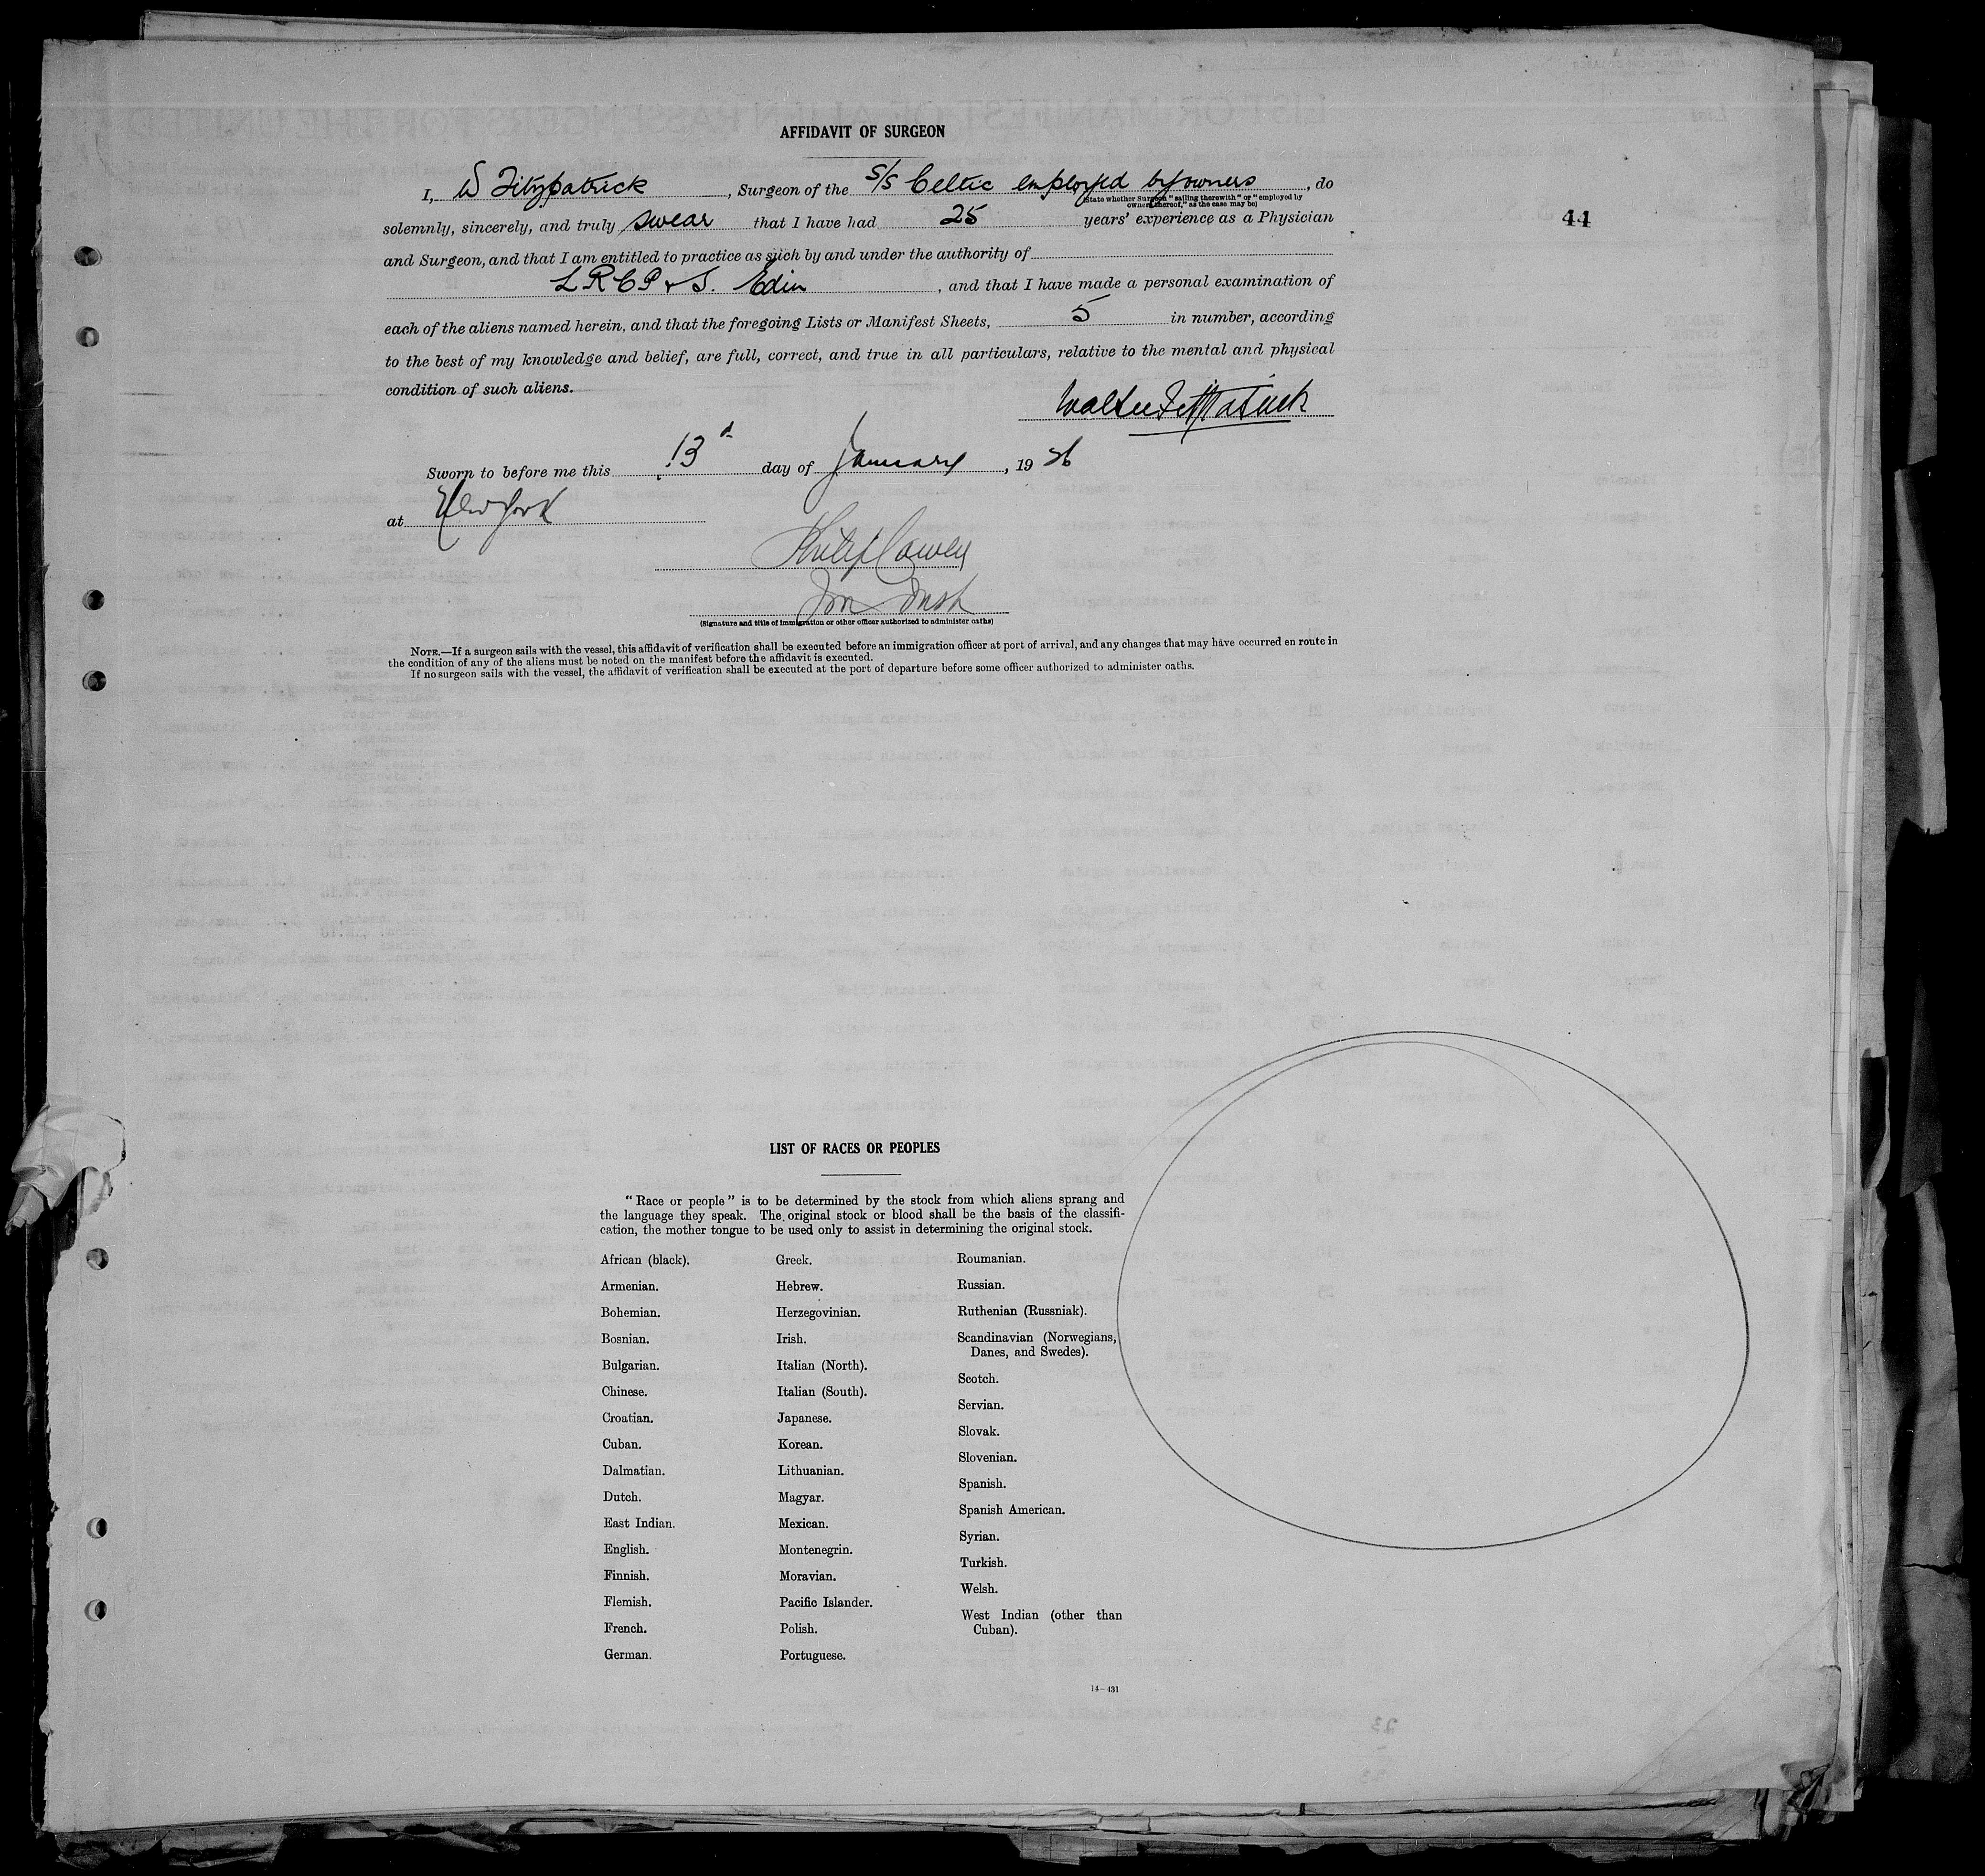 AFFIDAVIT OF SURGEON
I, W Fitzpatrick, Surgeon of the S/S Celtic employed by owners, do
(State whether Surgeon "sailing therewith" or "employed by
owners thereof," as the case may be)
solemnly, sincerely, and truly swear that I have had 25 years' experience as a Physician
44
and Surgeon, and that I am entitled to practice as such by and under the authority of
L R C P & S. Edin, and that I have made a personal examination of
each of the aliens named herein, and that the foregoing Lists or Manifest Sheets, 5 in number, according
to the best of my knowledge and belief, are full, correct, and true in all particulars, relative to the mental and physical
condition of such aliens.
Walter Fitzpatrick
Sworn to before me this 13 day of January, 19 26
at New York
Philip Cowen
(Signature and title of immigration or other officer authorized to administer oaths)
NOTE.—If a surgeon sails with the vessel, this affidavit of verification shall be executed before an immigration officer at port of arrival, and any changes that may have occurred en route in
the condition of any of the aliens must be noted on the manifest before the affidavit is executed.
If no surgeon sails with the vessel, the affidavit of verification shall be executed at the port of departure before some officer authorized to administer oaths.
LIST OF RACES OR PEOPLES
"Race or people" is to be determined by the stock from which aliens sprang and
the language they speak. The original stock or blood shall be the basis of the classifi-
cation, the mother tongue to be used only to assist in determining the original stock.
African (black).
Armenian.
Bohemian.
Bosnian.
Bulgarian.
Chinese.
Croatian.
Cuban.
Dalmatian.
Dutch.
East Indian.
English.
Finnish.
Flemish.
French.
German.
Greek.
Hebrew.
Herzegovinian.
Irish.
Italian (North).
Italian (South).
Japanese.
Korean.
Lithuanian.
Magyar.
Mexican.
Montenegrin.
Moravian.
Pacific Islander.
Polish.
Portuguese.
Roumanian.
Russian.
Ruthenian (Russniak).
Scandinavian (Norwegians,
Danes, and Swedes).
Scotch.
Servian.
Slovak.
Slovenian.
Spanish.
Spanish American.
Syrian.
Turkish.
Welsh.
West Indian (other than
Cuban).
14—431